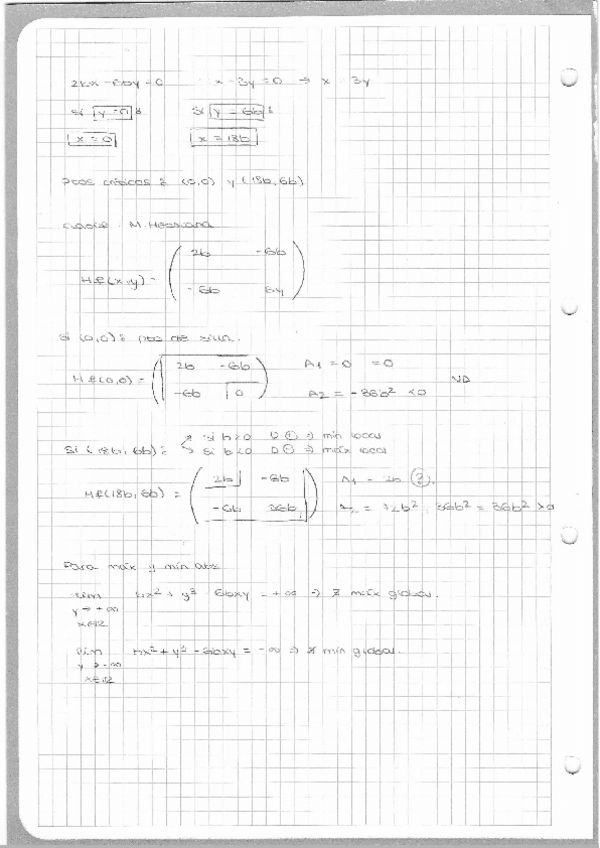 2bx - 6by = 0 x - 3y = 0 → x = 3y
Si y = 0 : Si y = 6b :
x = 0 x = 18b
Ptos críticos : (0,0) y (18b, 6b)
M. Hessiana
Hf(x,y) = ( 2b -6b
-6b 6y )
(0,0) : pto de sill.
Hf(0,0) = ( 2b -6b
-6b 0 ) A1 = 0 = 0
A2 = -36b² < 0 ND
Si (18b, 6b) : si b>0 D⊕ → mín local
si b<0 D⊖ → máx local
Hf(18b, 6b) = ( 2b -6b
-6b 36b ) A1 = 2b (?).
= 72b² - 36b² = 36b² > 0
Para máx y mín abs
lim bx² + y³ - 6bxy = +∞ → ∄ máx global.
y → +∞
x∈R
lim bx² + y³ - 6bxy = -∞ → ∄ mín global.
y → -∞
x∈R